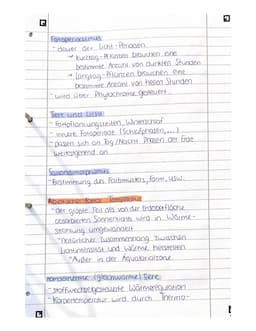 Fotoperiodismus
- dauer der Licht-Perioden
→ Kurztag-Pflanzen brauchen eine
bestimmte Anzahl von dunklen Stunden
→ Langtag-Pflanzen brauchen eine
bestimmte Anzahl von hellen Stunden
- wird über Phytochrome gesteuert
Tiere und Licht
- Fortpflanzungszeiten, Winterschlaf
- innere Fotoperiode (Schlafphasen,...)
- passen sich an Tag/Nacht Phasen der Erde
weitestgehend an
Saisondimorphismus
- Bestimmung des Farbmusters, Form, usw.
Temperatur
- der größte Teil des von der Erdoberfläche
absorbierten Sonnenlichts wird in Wärme-
strahlung umgewandelt
→ natürlicher Zusammenhang zwischen
Lichtintensität und Wärme
→ Außer in der Äquatorialzone
homoiotherme (gleichwarme) Tiere
- stoffwechselgesteuerte Wärmeregulation
- Körpertemperatur wird durch Thermo-